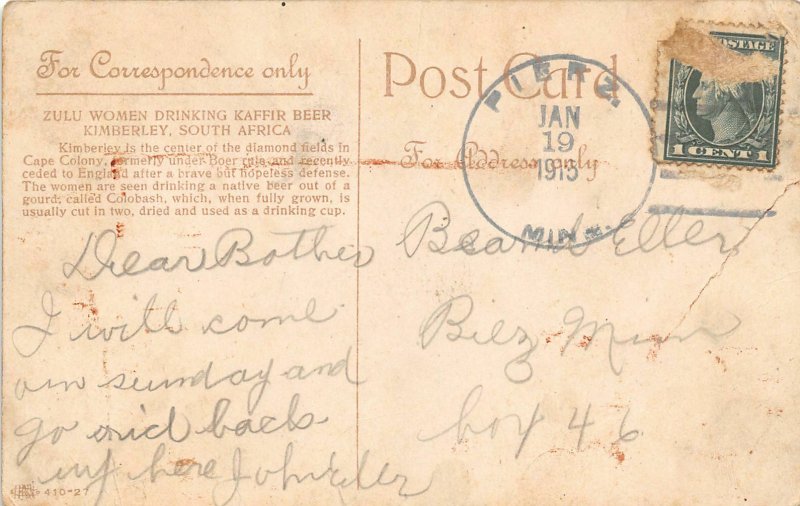 For Correspondence only
ZULU WOMEN DRINKING KAFFIR BEER
KIMBERLEY, SOUTH AFRICA
Kimberley is the center of the diamond fields in
Cape Colony, formerly under Boer rule and recently
ceded to England after a brave but hopeless defense.
The women are seen drinking a native beer out of a
gourd, called Colobash, which, when fully grown, is
usually cut in two, dried and used as a drinking cup.
Dear Bother
I will come
on sunday and
go back
here John
410-27
Post Card
For Address only
PIERZ
JAN
19
1915
MINN.
POSTAGE
1 CENT 1
Eller
Minn
box 46